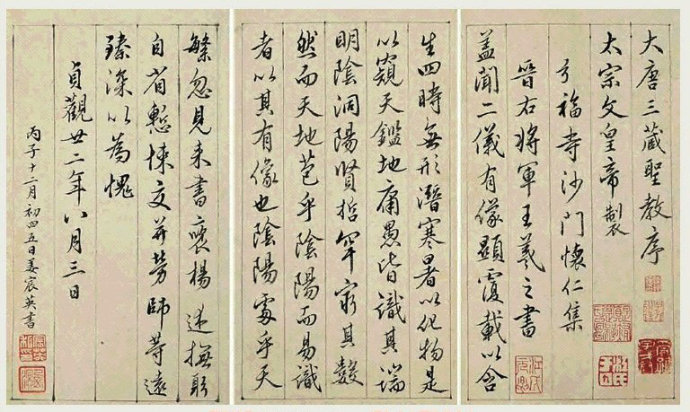 大唐三藏聖教序
太宗文皇帝製
弘福寺沙門懷仁集
晉右將軍王羲之書
蓋聞二儀有像顯覆載以含
生四時無形潛寒暑以化物是
以窺天鑑地庸愚皆識其端
明陰洞陽賢哲罕窮其數
然而天地苞乎陰陽而易識
者以其有像也陰陽處乎天
繁忽見来書褒揚 述撫躬
自省慙悚交并勞師等遠
臻深以為愧
貞觀廿二年八月三日
丙子十二月初四五日姜宸英書